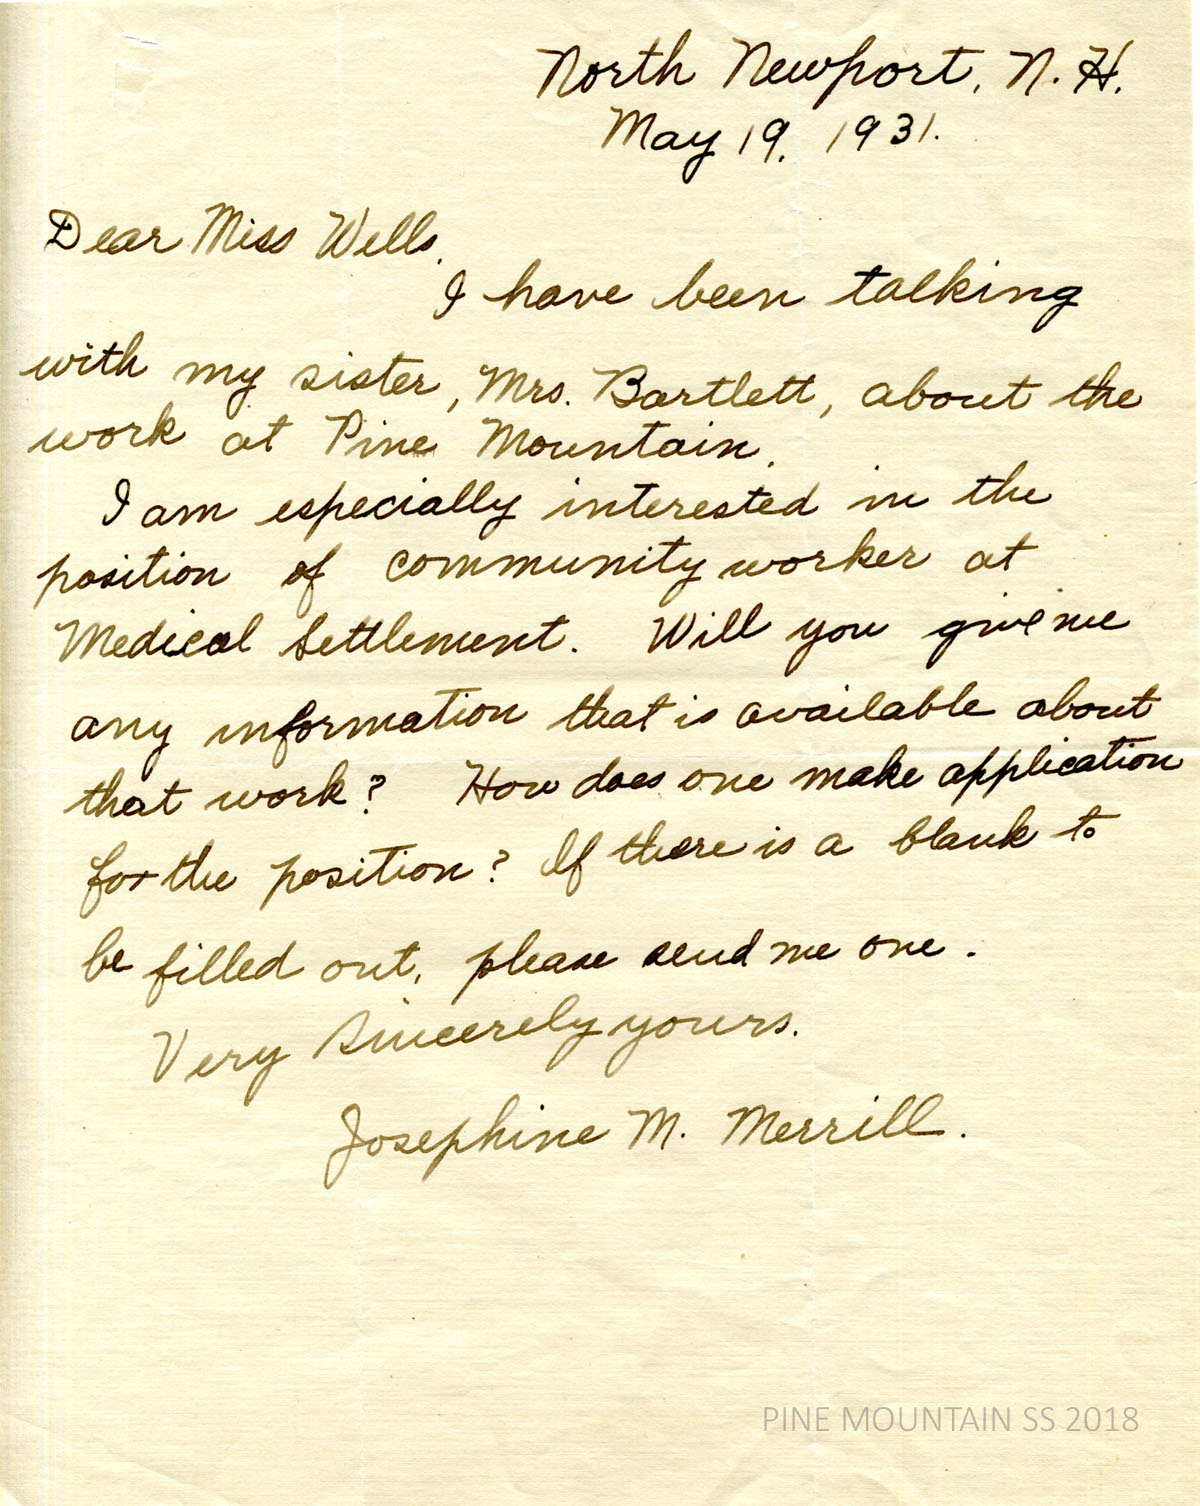 North Newport, N. H.
May 19, 1931.
Dear Miss Wells,
I have been talking
with my sister, Mrs. Bartlett, about the
work at Pine Mountain.
I am especially interested in the
position of community worker at
Medical Settlement. Will you give me
any information that is available about
that work? How does one make application
for the position? If there is a blank to
be filled out, please send me one.
Very Sincerely yours.
Josephine M. Merrill.
PINE MOUNTAIN SS 2018